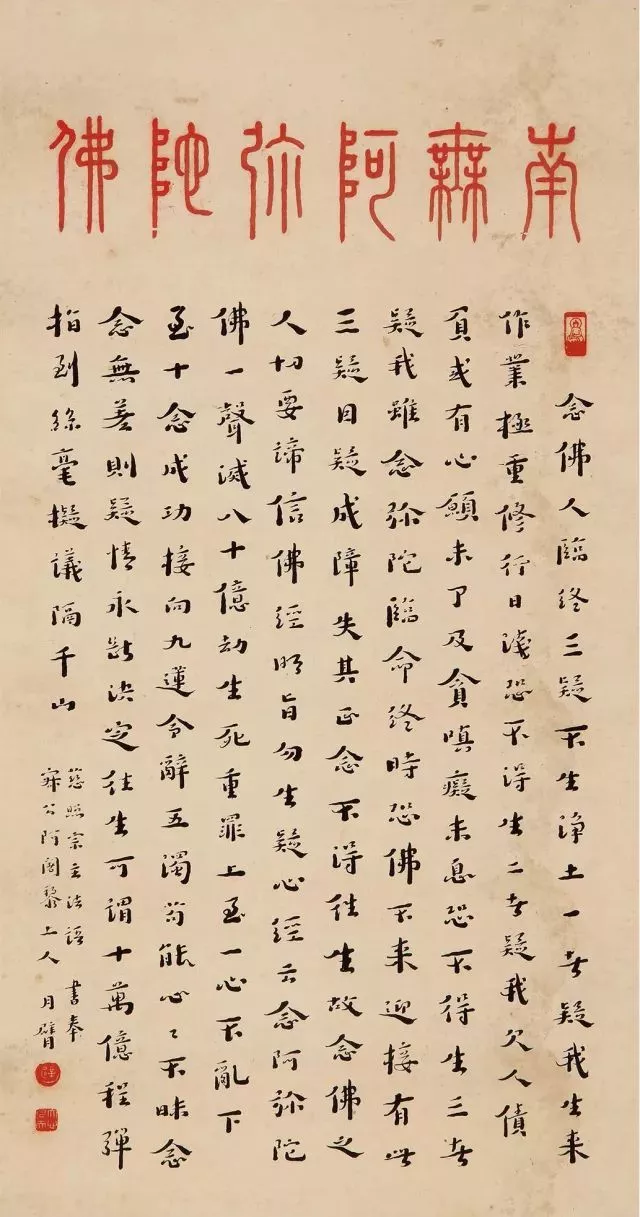 南無阿弥陀佛
念佛人臨終三疑不生淨土一者疑我生来
作業極重修行日淺恐不淂生二者疑我欠人債
負或有心願未了及貪嗔癡未息恐不得生三者
疑我雖念弥陀臨命終時恐佛不来迎接有此
三疑因疑成障失其正念不淂往生故念佛之
人切要諦信佛經明旨勿生疑心經云念阿弥陀
佛一聲滅八十億劫生死重罪上至一心不亂下
至十念成功接向九蓮令辭五濁苟能心〻不昧念
念無差則疑情永斷決定往生可謂十萬億程彈
指到絲毫擬議隔千山
慈照宗主法語 書奉
寂公阿闍黎上人 月臂